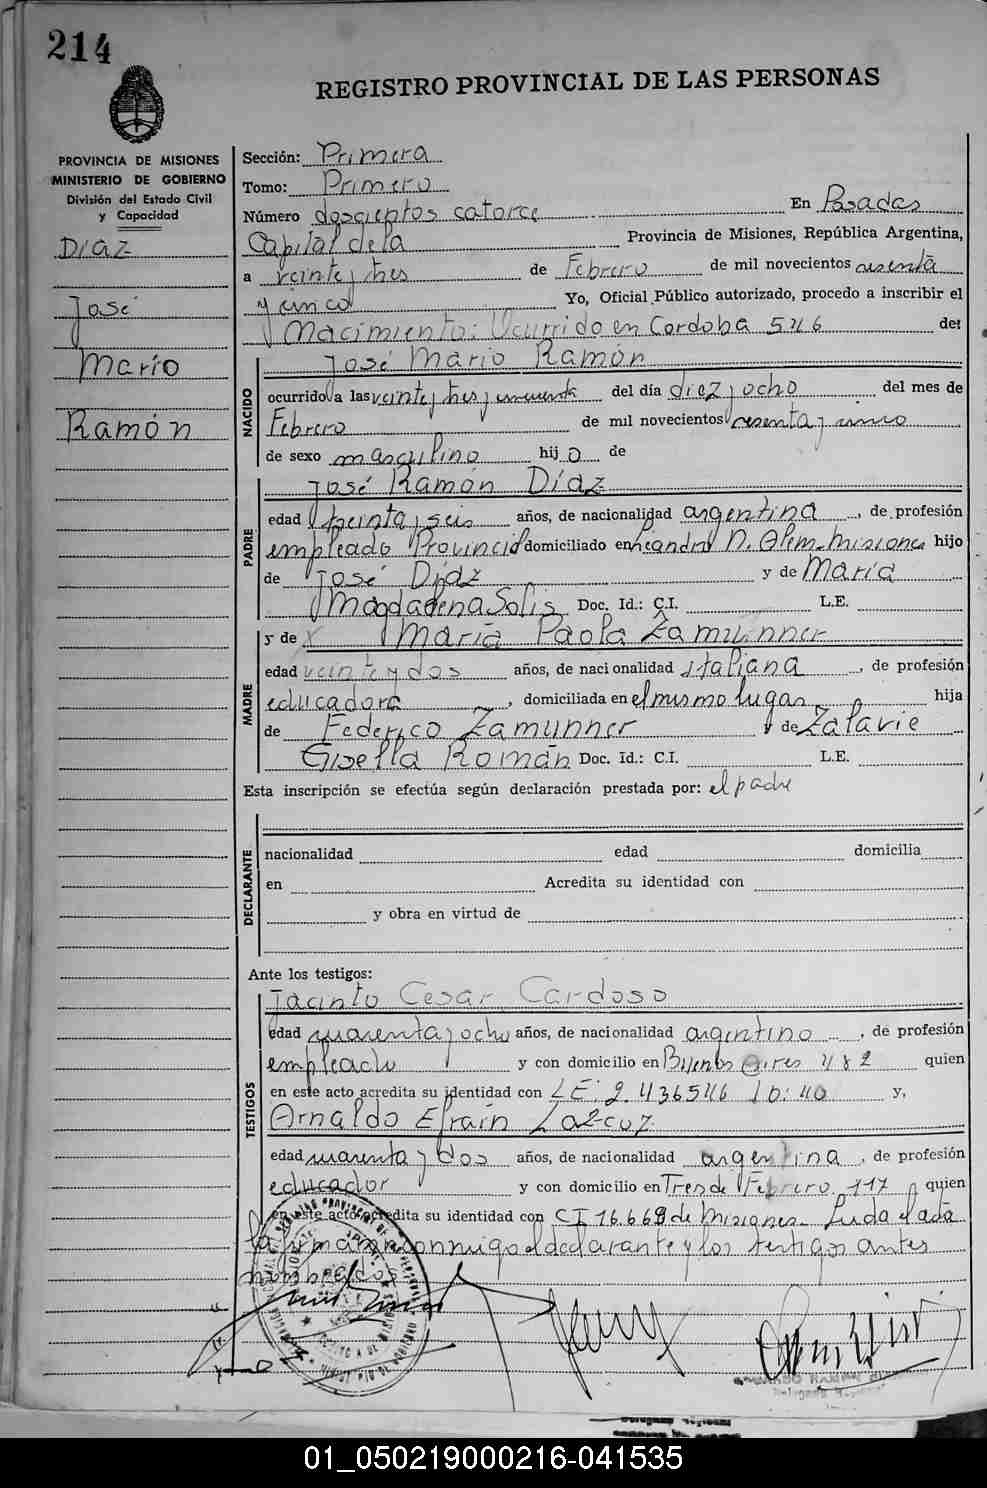 214
REGISTRO PROVINCIAL DE LAS PERSONAS
PROVINCIA DE MISIONES
MINISTERIO DE GOBIERNO
División del Estado Civil
y Capacidad
Díaz
José
Mario
Ramón
Sección: Primera
Tomo: Primero
Número doscientos catorce En Posadas
Capital de la Provincia de Misiones, República Argentina,
a veinte y tres de Febrero de mil novecientos sesenta
y cinco Yo, Oficial Público autorizado, procedo a inscribir el
Nacimiento: Ocurrido en Cordoba 546 del
NACIDO
José Mario Ramón
ocurrido a las veinte y tres y cincuenta del día diez y ocho del mes de
Febrero de mil novecientos sesenta y cinco
de sexo masculino hijo de
PADRE
José Ramón Díaz
edad treinta y seis años, de nacionalidad argentina, de profesión
empleado Provincial domiciliado en Leandro N. Alem-Misiones hijo
de José Díaz y de María
Magdalena Solis Doc. Id.: C.I. L.E.
MADRE
y de María Paola Zamunner
edad veinte y dos años, de nacionalidad italiana, de profesión
educadora, domiciliada en el mismo lugar hija
de Federico Zamunner y de Zalavie
Gisella Román Doc. Id.: C.I. L.E.
Esta inscripción se efectúa según declaración prestada por: el padre
DECLARANTE
nacionalidad edad domicilia
en Acredita su identidad con
y obra en virtud de
Ante los testigos:
TESTIGOS
Jacinto Cesar Cardoso
edad cuarenta y ocho años, de nacionalidad argentino, de profesión
empleado y con domicilio en Buenos Aires 482 quien
en este acto acredita su identidad con LE: 2.436546 y,
Arnaldo Efraín
edad cuarenta y dos años, de nacionalidad argentina, de profesión
educador y con domicilio en Tres de Febrero 117 quien
en este acto acredita su identidad con CI 16.669 de Misiones. Leída el acta
la firman conmigo el declarante y los testigos antes
nombrados
01_050219000216-041535